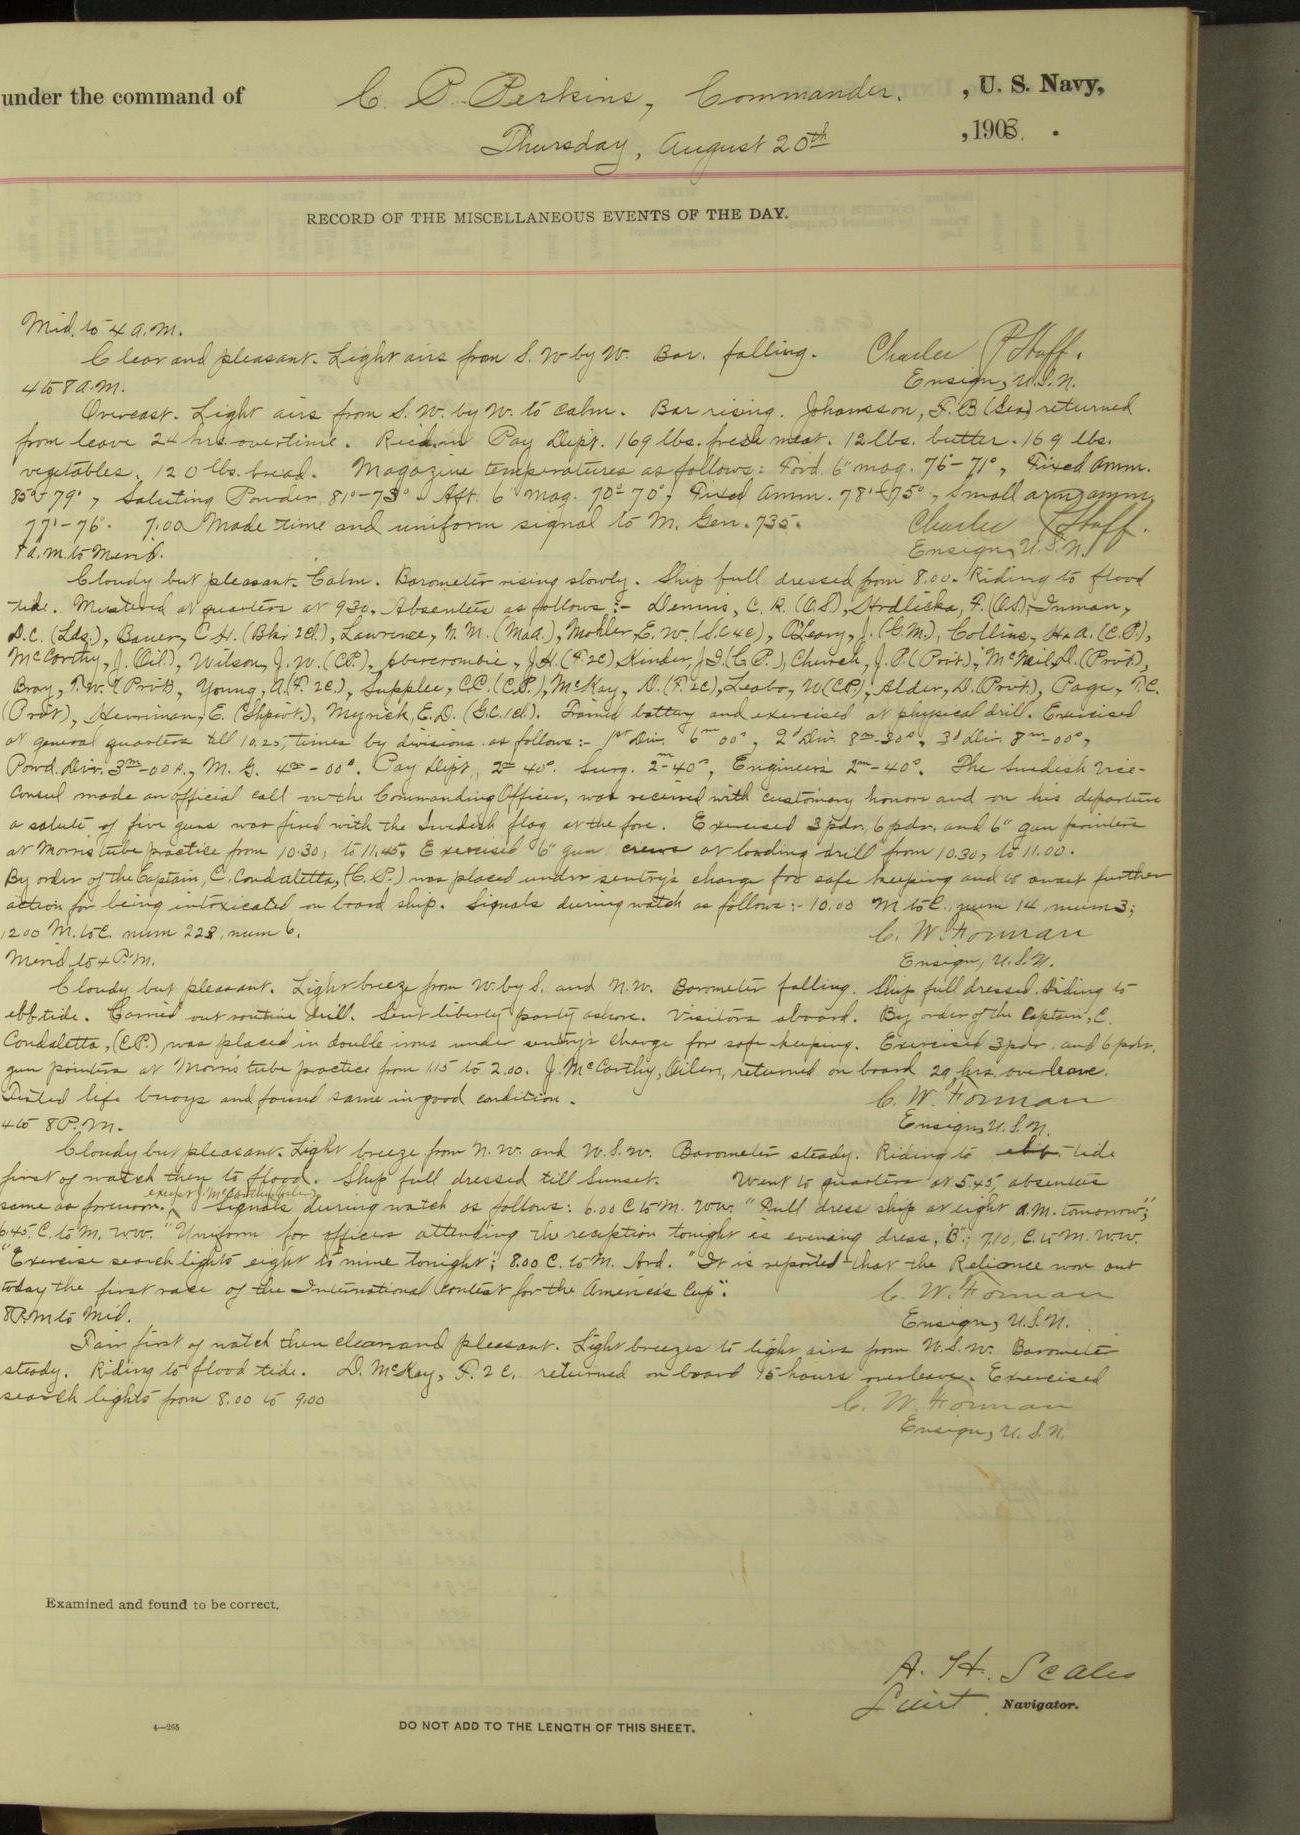 under the command of C. P. Perkins, Commander. , U. S. Navy,
Thursday, August 20th , 1903 .
RECORD OF THE MISCELLANEOUS EVENTS OF THE DAY.
Mid. to 4 A.M.
Clear and pleasant. Light airs from S. W by W. Bar. falling. Charles
4 to 8 A.M. Ensign, U.S.N.
Overcast. Light airs from S. W. by W. to calm. Bar rising. Johansson, F. B (Sea) returned
from leave 24 hrs. overtime. Rec'd. in Pay Dept. 169 lbs. fresh meat. 12 lbs. butter. 169 lbs.
vegetables. 120 lbs. bread. Magazine temperatures as follows: Ford. 6" mag. 76°-71°, Fixed Amm.
85°-79°, Saluting Powder 81°-73°. Aft. 6" mag. 70°-70°, Fixed Amm. 78°-75°, Small arm amm.
77°-76°. 7.00 Made time and uniform signal to M. Gen. 735. Charles
8 a.m. to Merid. Ensign, U.S.N.
Cloudy but pleasant. Calm. Barometer rising slowly. Ship full dressed from 8.00. Riding to flood
tide. Mustered at quarters at 9.30. Absentees as follows:- Dennis, C. R. (O.S), Hrdlicka, F. (O.S), Inman,
D.C. (Lds.), Bauer, C H. (Bkr 2cl.), Lawrence, N. M. (Maa.), Mohler, E. W. (S.C 4c), O'Leary, J. (G.M.), Collins, H. A. (C.P.),
McCarthy, J. (Oil.), Wilson, J. W. (CP.), Abercrombie, J.H. (F 2c) Kinder, J I (C P.), Church, J. P. (Priv't), McNeil, D. (Priv't),
Bray, F. W. (Priv't), Young, A. (F. 2C.), Supplee, C.C. (C.P.), McKay, D. (F. 2C), Leabo, W (CP), Alder, D. (Priv't.), Page, T. C.
(Priv't), Herriman, E. (Shpwt.), Myrick, E. D. (G.C. 1cl.). Formed battery and exercised at physical drill. Exercised
at general quarters till 10.25, times by divisions as follows:- 1st Div. 6m 00s, 2d Div. 8m-30s, 3d Div. 8m-00s,
Powd. Div. 3m-00s., M. G. 4m-00s. Pay Dept., 2m 40s. Surg. 2m-40s, Engineers 2m-40s. The Swedish Vice-
Consul made an official call on the Commanding Officer, was received with customary honors and on his departure
a salute of five guns was fired with the Swedish flag at the fore. Exercised 3 pdr. 6 pdr. and 6" gun pointers
at Morris tube practice from 10.30, to 11.45, Exercised 6" gun crews at loading drill from 10.30, to 11.00.
By order of the Captain, C. Condaletta, (C.P.) was placed under sentry's charge for safe keeping and to await further
action for being intoxicated on board ship. Signals during watch as follows:- 10.00 M to C. num 14, num 3;
12 00 M. to C. num 223, num 6. C. W. Forman
Merid. to 4 P.M. Ensign, U.S.N.
Cloudy but pleasant. Light breeze from W. by S. and N. W. Barometer falling. Ship full dressed. Riding to
ebb tide. Carried out routine drill. Sent liberty party ashore. Visitors aboard. By order of the Captain, C.
Condaletta, (C.P.) was placed in double irons under sentry's charge for safe keeping. Exercised 3 pdr. and 6 pdr.
gun pointers at Morris tube practice from 1.15 to 2.00. J. McCarthy, Oiler, returned on board 29 hrs. overleave.
Tested life buoys and found same in good condition. C. W. Forman
4 to 8 P.M. Ensign, U.S.N.
Cloudy but pleasant. Light breeze from N. W. and W. S. W. Barometer steady. Riding to ebb tide
first of watch then to flood. Ship full dressed till Sunset. Went to quarters at 5.45, absentees
same as forenoon. except McCarthy (oiler) Signals during watch as follows: 6.00 C to M. WW. "Full dress ship at eight A.M. tomorrow";
6.45 C. to M. WW. "Uniform for officers attending the reception tonight is evening dress, "B"; 7.10, C. to M. WW.
"Exercise search lights eight to nine tonight"; 8.00 C. to M. Ard. "It is reported that the Reliance won out
today the first race of the International contest for the America's Cup". C. W. Forman
8 P.M to Mid. Ensign, U.S.N.
Fair first of watch then clear and pleasant. Light breezes to light airs from W. S. W. Barometer
steady. Riding to flood tide. D. McKay, F. 2 C. returned on board 15 hours overleave. Exercised
search lights from 8.00 to 9.00 C. W. Forman
Ensign, U.S.N.
Examined and found to be correct.
A. H. Scales
Lieut. Navigator.
4—265 DO NOT ADD TO THE LENGTH OF THIS SHEET.